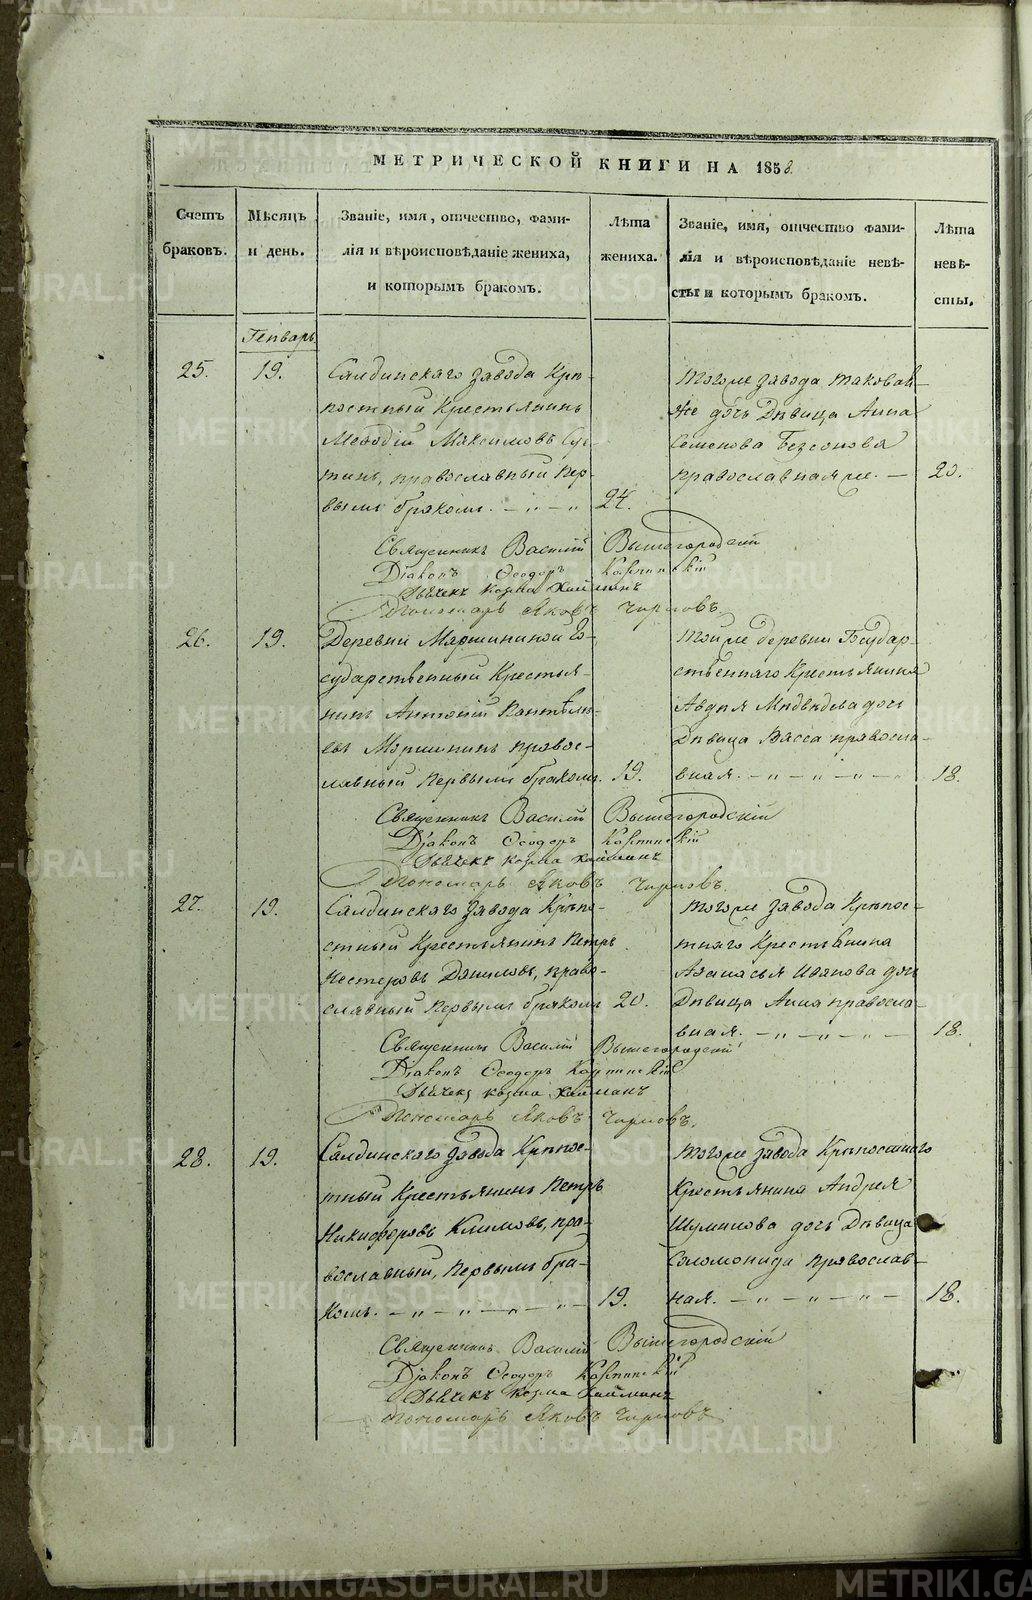 МЕТРИЧЕСКОЙ КНИГИ НА 1858.
Счетъ браковъ.
Мѣсяцъ и день.
Званіе, имя, отчество, фами-
лія и вѣроисповѣданіе жениха,
и которымъ бракомъ.
Лѣта жениха.
Званіе, имя, отчество фами-
лія и вѣроисповѣданіе невѣ-
сты и которымъ бракомъ.
Лѣта невѣ-
сты.
Генварь.
25. 19.
Салдинскаго завода Крѣ-
постный Крестьянинъ
Меѳодій Максимовъ
православный пер-
вымъ бракомъ. — „ — „ — 24.
Тогоже завода таковая-
же дочь Дѣвица Анна
Семенова Безсонова
православная же. — 20.
Священникъ Василій Вышегородскій
Діаконъ Ѳеодоръ
Дьячекъ Козма
Пономарь Яковъ Чирковъ.
26. 19.
Деревни Маршининой Го-
сударственный Крестья-
нинъ Антоній Пантелѣ-
евъ Моршининъ правос-
лавный первымъ бракомъ. 19.
Тойже деревни Государ-
ственнаго Крестьянина
Авдия Медведева дочь
Дѣвица Васса правосла-
вная. — „ — „ — „ — „ 18.
Священникъ Василій Вышегородскій
Діаконъ Ѳеодоръ
Дьячекъ Козма
Пономарь Яковъ Чирковъ.
27. 19.
Салдинскаго Завода Крѣпо-
стный Крестьянинъ Петръ
Нестеровъ Даниловъ, право-
славный первымъ бракомъ 20.
Тогоже завода Крѣпос-
тнаго Крестьянина
Аѳанасья Иванова дочь
Дѣвица Анна правосла-
вная. — „ — „ — „ — 18.
Священникъ Василій Вышегородскій
Діаконъ Ѳеодоръ
Дьячекъ Козма
Пономарь Яковъ Чирковъ.
28. 19.
Салдинскаго завода Крѣпос-
тный Крестьянинъ Петръ
Никифоровъ Климовъ, пра-
вославный, первымъ бра-
комъ. — „ — „ — „ — „ — 19.
Тогоже завода Крѣпостнаго
Крестьянина Андрея
Шумилова дочь Дѣвица
Соломонида православ-
ная. — „ — „ — „ — 18.
Священникъ Василій Вышегородскій
Діаконъ Ѳеодоръ
Дьячекъ Козма
Пономарь Яковъ Чирковъ
METRIKI.GASO-URAL.RU